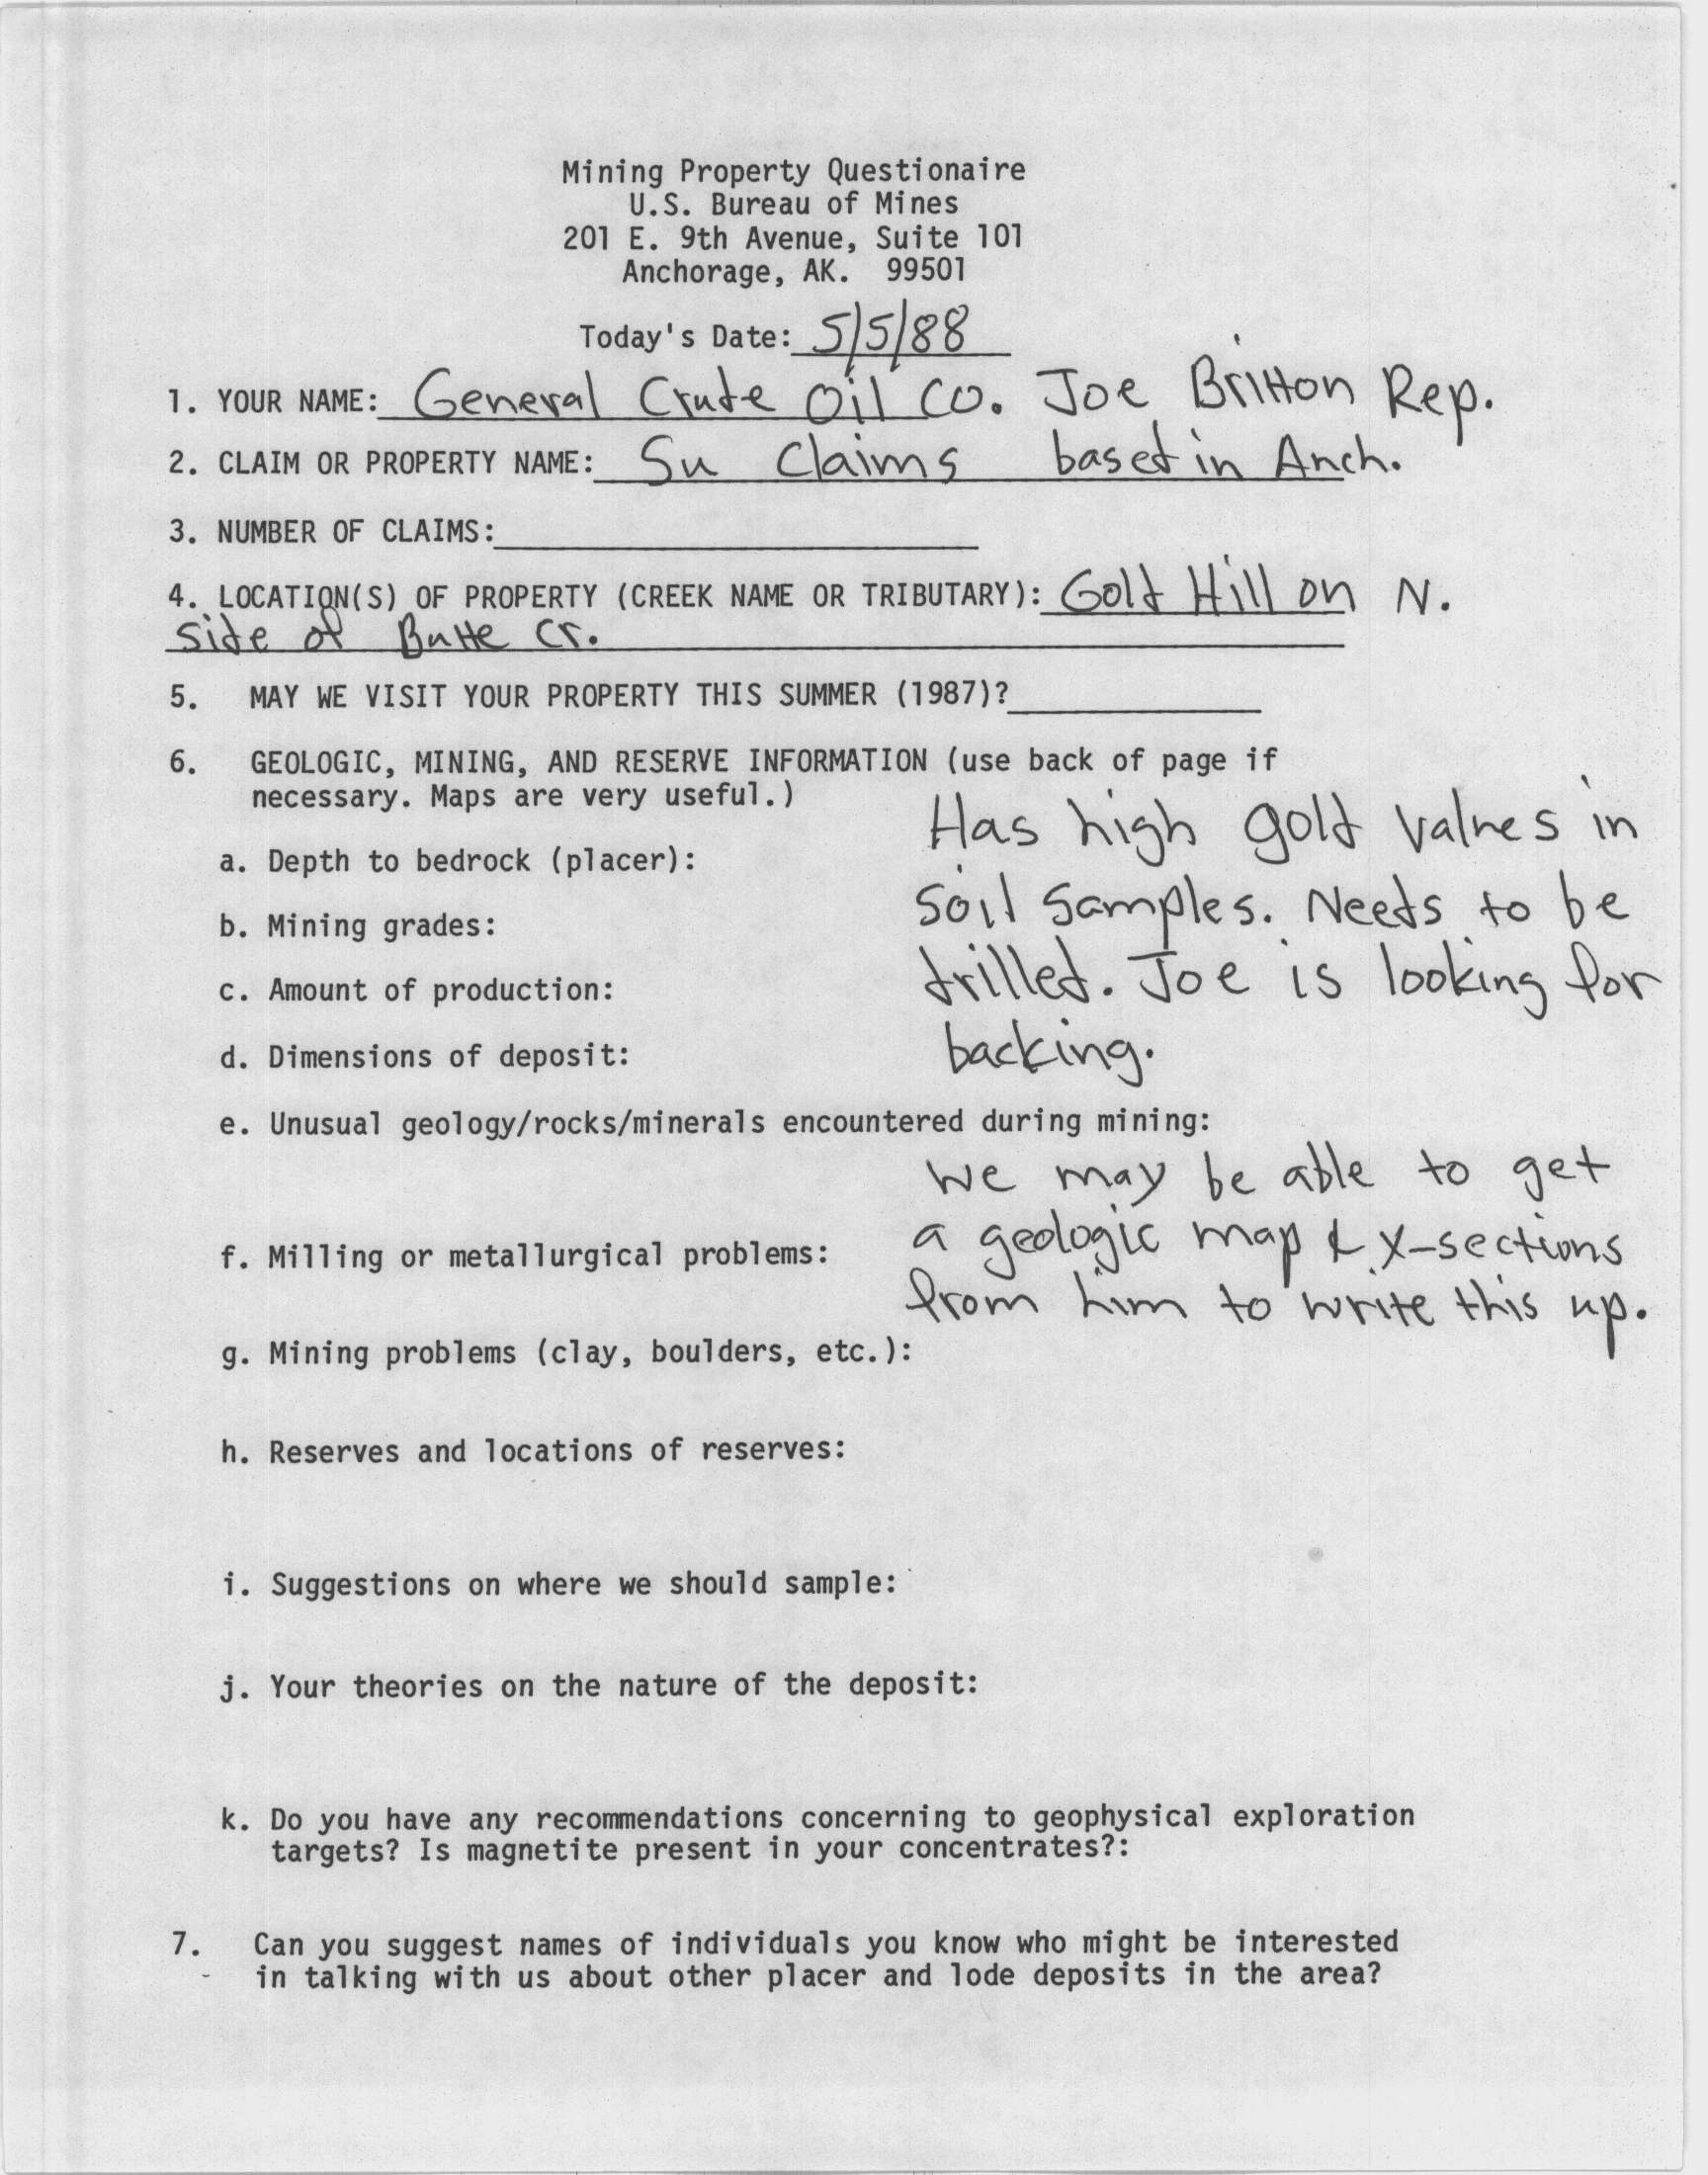 Mining Property Questionaire
U.S. Bureau of Mines
201 E. 9th Avenue, Suite 101
Anchorage, AK. 99501
Today's Date: 5/5/88
1. YOUR NAME: General Crude Oil Co. Joe Britton Rep.
2. CLAIM OR PROPERTY NAME: Su Claims based in Anch.
3. NUMBER OF CLAIMS:
4. LOCATION(S) OF PROPERTY (CREEK NAME OR TRIBUTARY): Gold Hill on N.
side of Butte Cr.
5. MAY WE VISIT YOUR PROPERTY THIS SUMMER (1987)?
6. GEOLOGIC, MINING, AND RESERVE INFORMATION (use back of page if
necessary. Maps are very useful.)
Has high gold values in
a. Depth to bedrock (placer):
soil samples. Needs to be
b. Mining grades:
drilled. Joe is looking for
c. Amount of production:
backing.
d. Dimensions of deposit:
e. Unusual geology/rocks/minerals encountered during mining:
We may be able to get
a geologic map & x-sections
f. Milling or metallurgical problems:
from him to write this up.
g. Mining problems (clay, boulders, etc.):
h. Reserves and locations of reserves:
i. Suggestions on where we should sample:
j. Your theories on the nature of the deposit:
k. Do you have any recommendations concerning to geophysical exploration
targets? Is magnetite present in your concentrates?:
7. Can you suggest names of individuals you know who might be interested
in talking with us about other placer and lode deposits in the area?